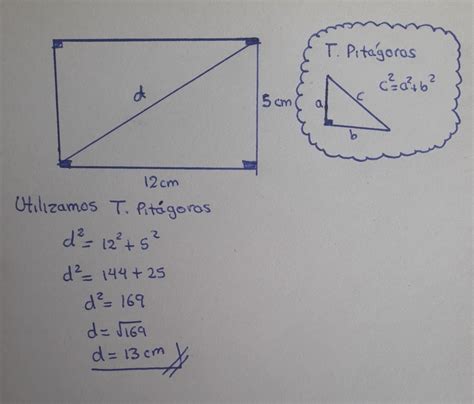 d
5cm
12cm
T. Pitágoras
c²=a²+b²
a
c
b
Utilizamos T. Pitágoras
d²=12²+5²
d²=144+25
d²=169
d=√169
d=13cm